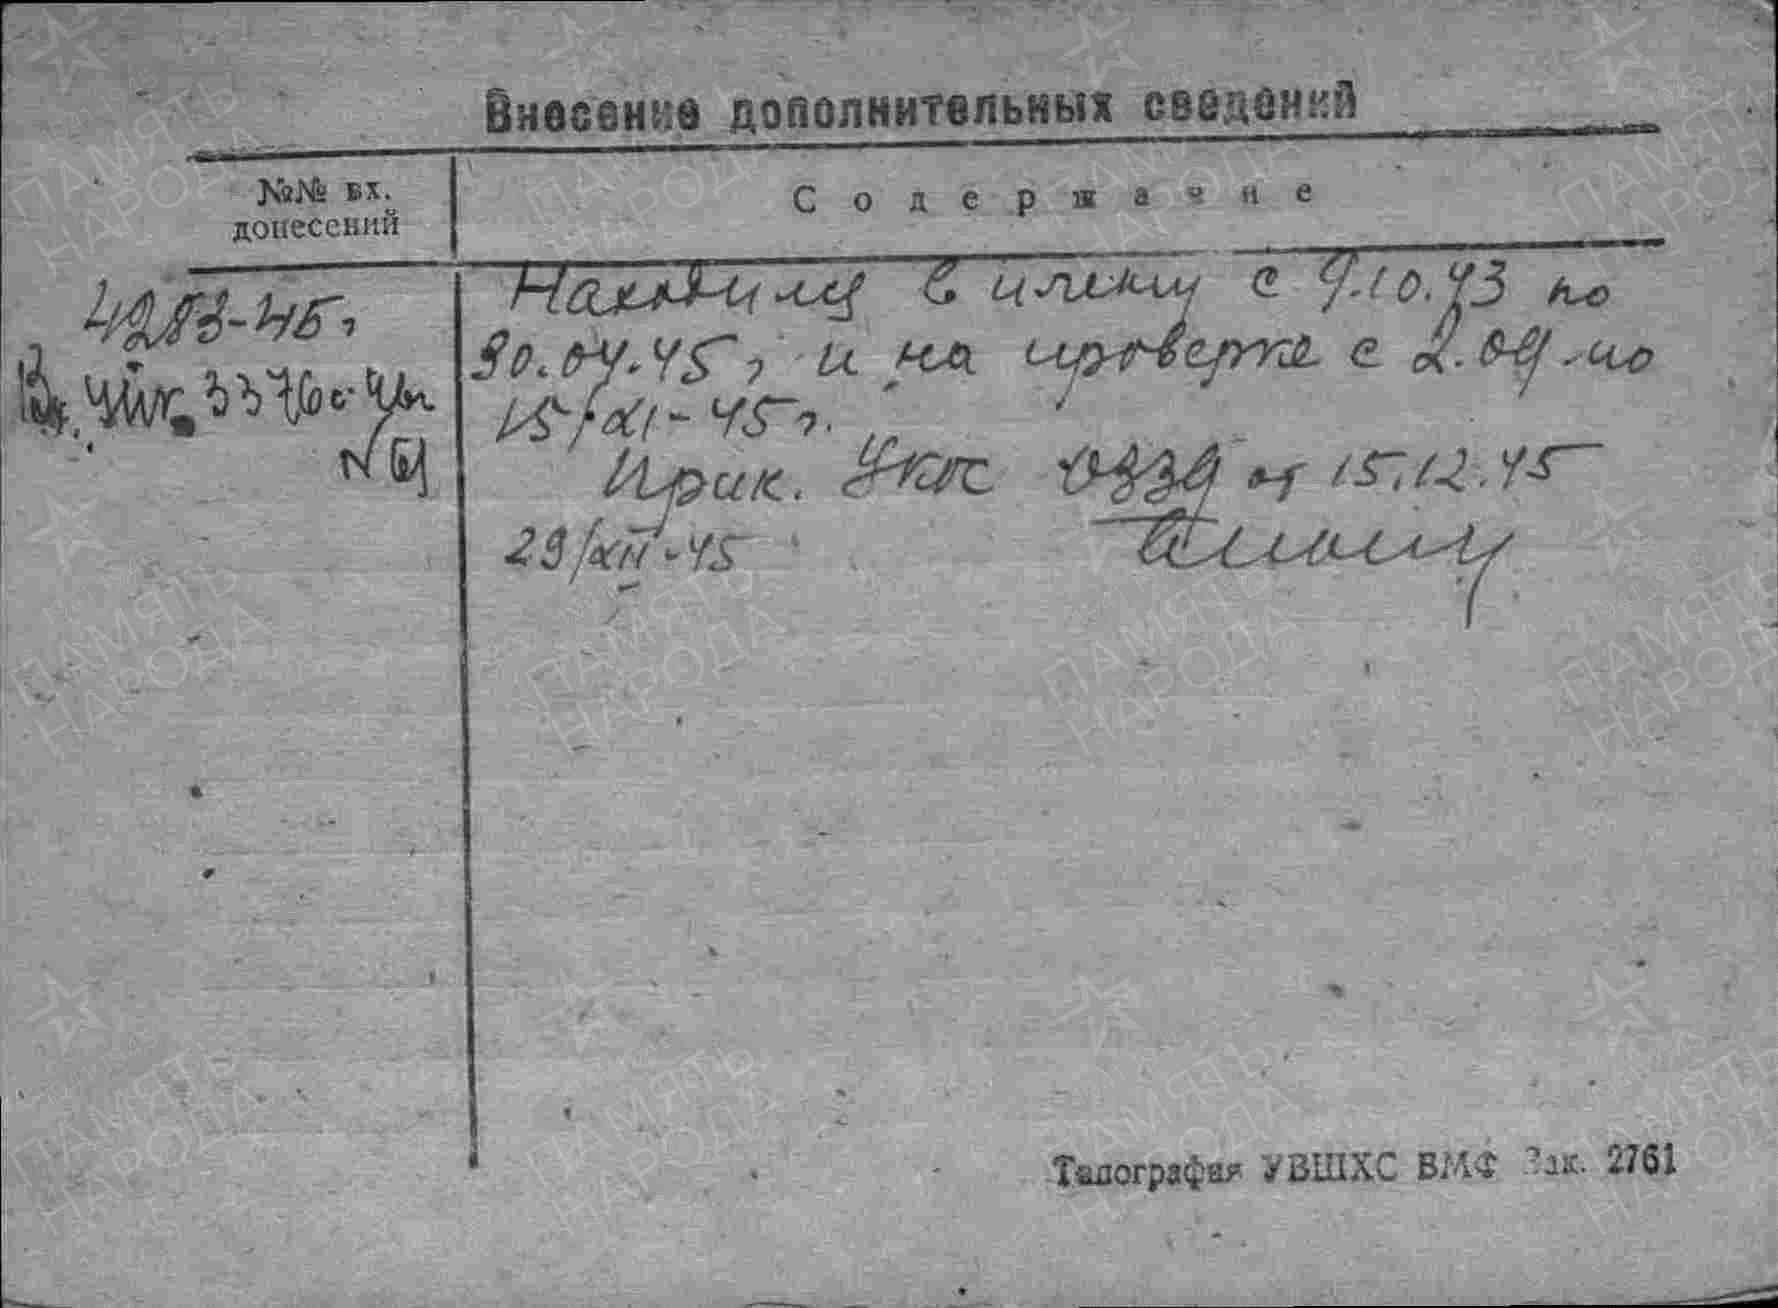 Внесение дополнительных сведений
№№ вх.
донесений
Содержание
Находился в плену с 9.10.43 по
30.04.45г и на проверке с 2.09 по
15/XI-45г.
Прик. УКК 0339 от 15.12.45
29/XII-45
4283-45г
Типография УВШХС ВМФ Зак. 2761
ПАМЯТЬ
НАРОДА